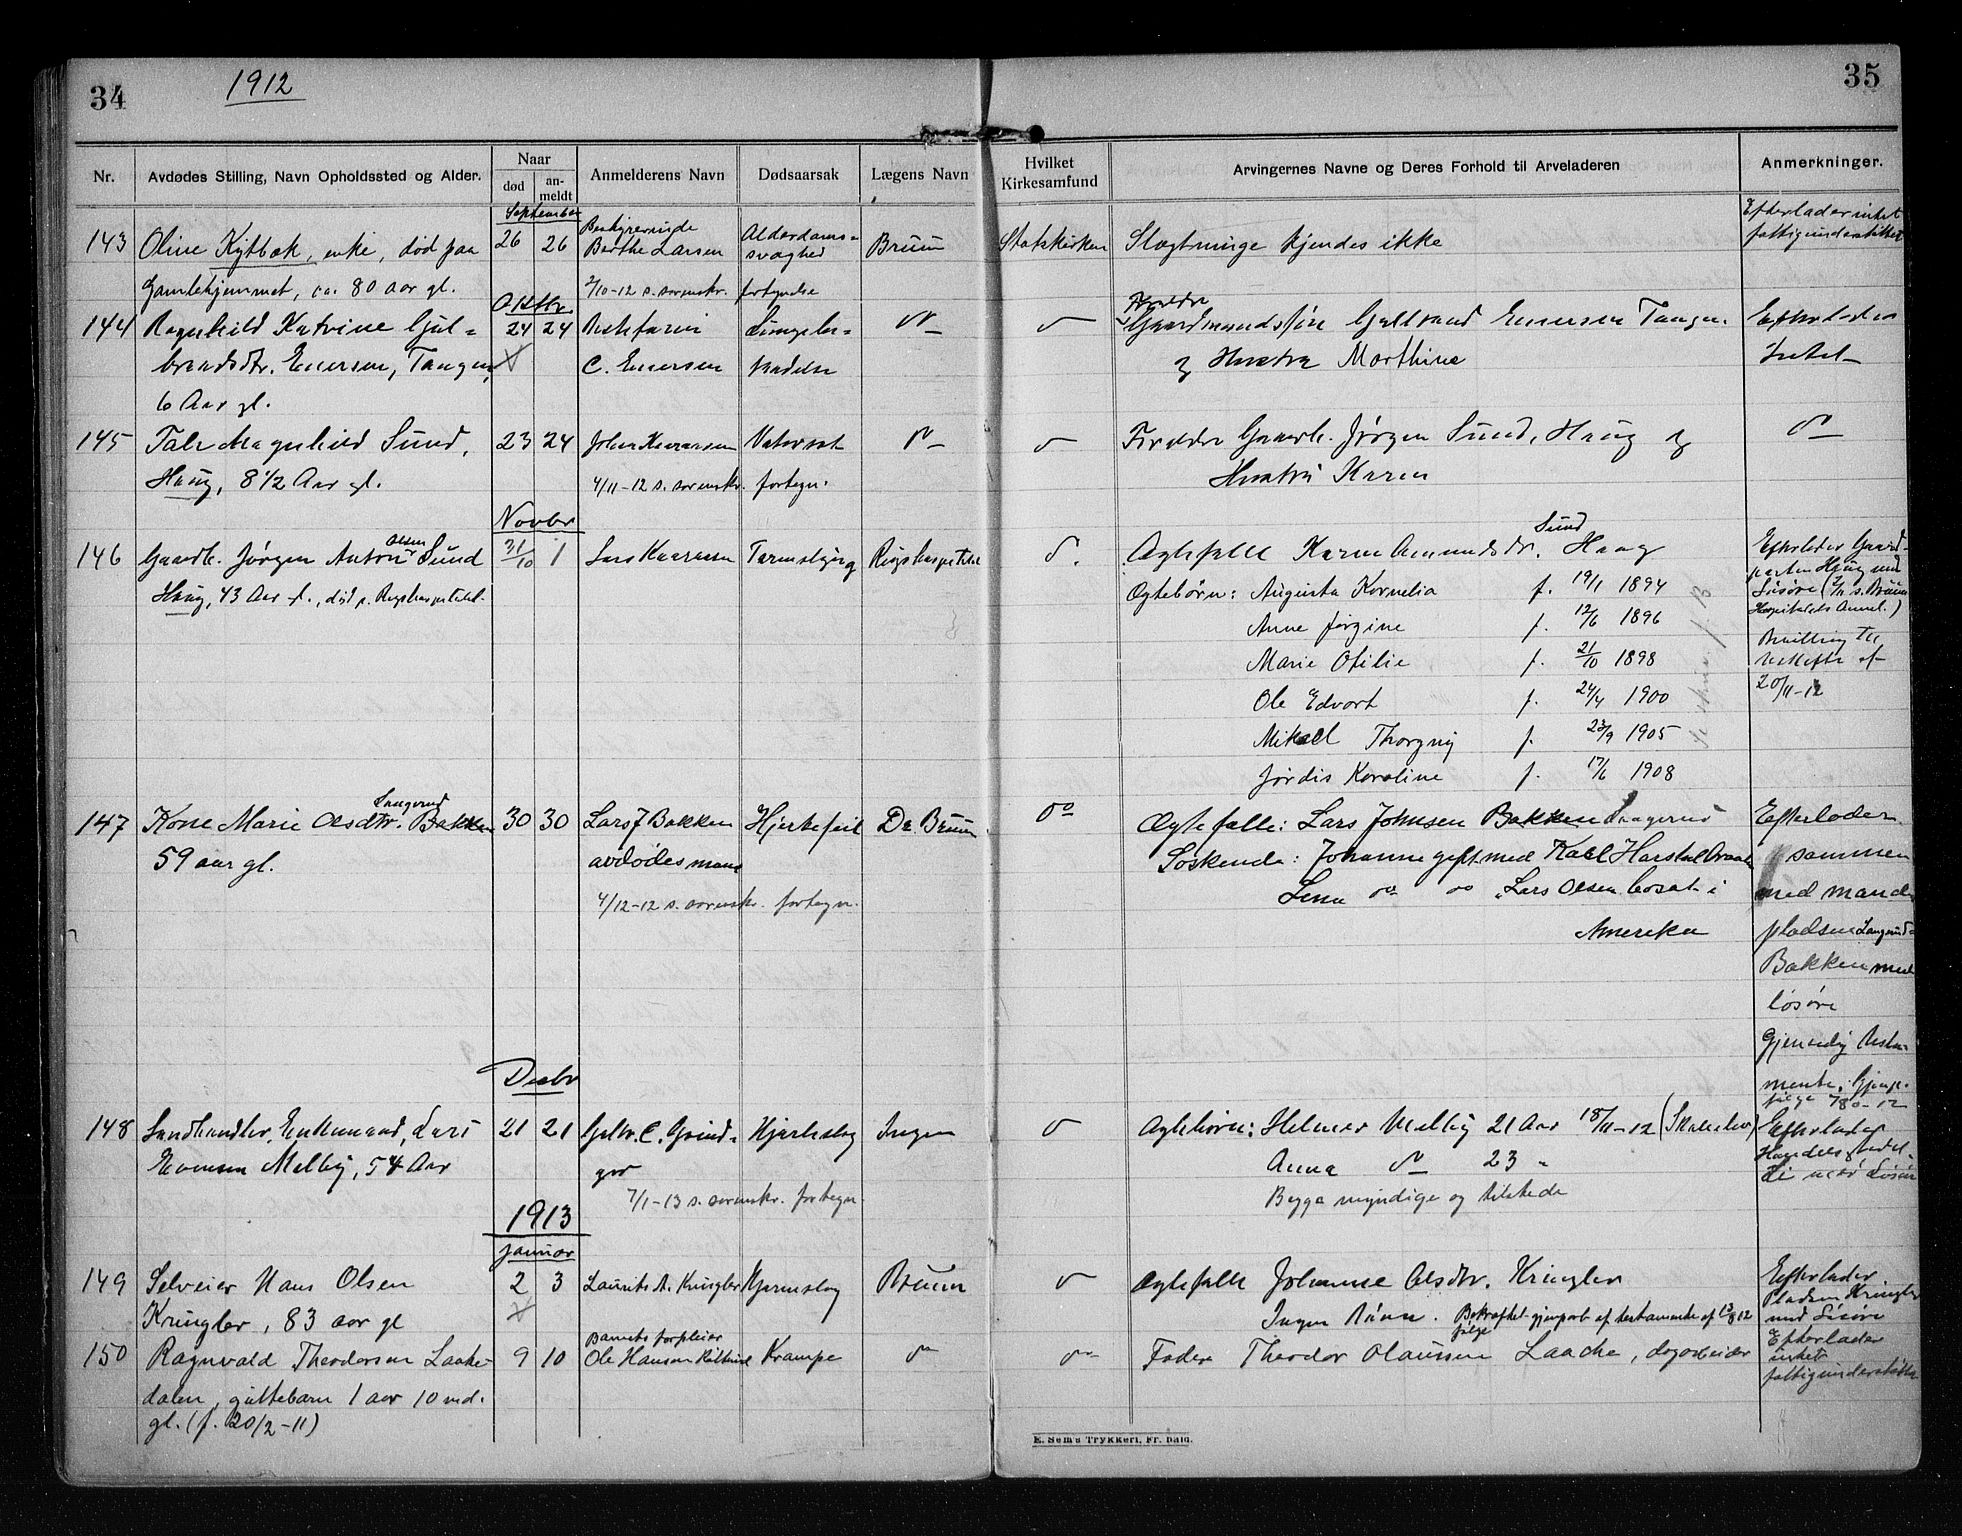 34
1912
35
Nr.
Avdødes Stilling, Navn Opholdssted og Alder.
Naar
død
an-
meldt
Anmelderens Navn
Dødsaarsak
Lægens Navn
Hvilket
Kirkesamfund
Arvingernes Navne og Deres Forhold til Arveladeren
Anmerkninger.
September
143
Oline Kytbæk, enke, død paa
Gamlehjemmet, ca. 80 aar gl.
26
26
Bestyrerinde
Berthe Larsen
2/10-12 s. sorenskr. fortegnelse
Alderdoms-
svaghed
Bruun
Statskirken
Slægtninge kjendes ikke
Efterlader intet
fattigunderstøttet
Oktbr
144
Ragnhild Katrine Gul-
brandsdtr. Enersen, Tangen,
6 Aar gl.
24
24
Bestefaren
C. Enersen
Lungebe-
tændelse
Do
Forældre
Gaardmandsføn Gulbrand Enersen Tangen
og Hustru Marthine
Efterlader
Intet
145
Magnhild Sund,
Haug, 8 1/2 Aar gl.
23
24
Johan
4/11-12 s. sorenskr. fortegn.
Vatersot
Do
Forældre Gaardb. Jørgen Sund, Haug og
Hustru Karen
Do
Novbr
146
Gaardb. Jørgen Anton Olsen Sund
Haug, 43 Aar gl., død p. Rigshospitalet.
31/10
1
Lars
Tarmslyng
Rigshospitalet
Do.
Ægtefælle Karen Amundsdtr. Sund Haug
Ægtebørn: Augusta Kornelia f. 19/1 1894
Anne Jørgine f. 12/6 1896
Marie Otilie f. 21/10 1898
Ole Edvart f. 24/4 1900
Mikael Thorgny f. 23/9 1905
Jørdis Karoline f. 17/6 1908
Efterlader Gaard-
parten Haug med
Løsøre
Hospitalets Anmel.)
Bevilling til
Uskifte af
20/11-12
147
Kone Marie Olsdtr. Langerud Bakken
59 aar gl.
30
30
Lars J Bakken
avdødes mand
4/12-12 s. sorenskr. fortegn.
Hjertefeil
Dr. Bruun
Do
Ægtefælle: Lars Johnsen Bakken Langerud
Søskende: Johanne gift med Karl Harstad
Lena do do Lars Olsen bosat i
Amerika
Efterlader
sammen
med mand
pladsen Langerud-
Bakken med
løsøre
Gjensidig testa-
mente.
Decbr
148
Landhandler, Enkemand, Lars
Evensen Melby, 54 Aar
21
21
Geltr. C. Grind-
ger
7/1-13 s. sorenskr. fortegn.
Hjerteslag
Ingen
Do
Ægtebørn: Helmer Melby 21 Aar 18/11-12
Anna do 23 "
Begge myndige og tilstede
Efterlader
Handelssted-
1913
Januar
149
Selveier Hans Olsen
Kringler, 83 aar gl
2
3
Laurits A. Kringler
Hjerneslag
Bruun
Do
Ægtefælle Johanne Olsdtr. Kringler
Ingen Børn. Bekræftet gjenpart af testamente af 13/8 12
følge
Efterlader
Pladsen Kringler
med Løsøre
150
Ragnvald Theodorsen Laake-
dalen, guttebarn 1 aar 10 md.
gl. (f. 20/2-11)
9
10
Barnets forpleier
Ole Hansen
Krampe
Do
Do
Fader Theodor Olaussen Laache, dagarbeider
Efterlader
intet
fattigunderstøttet
E. Sem's Trykkeri, Fr.hald.